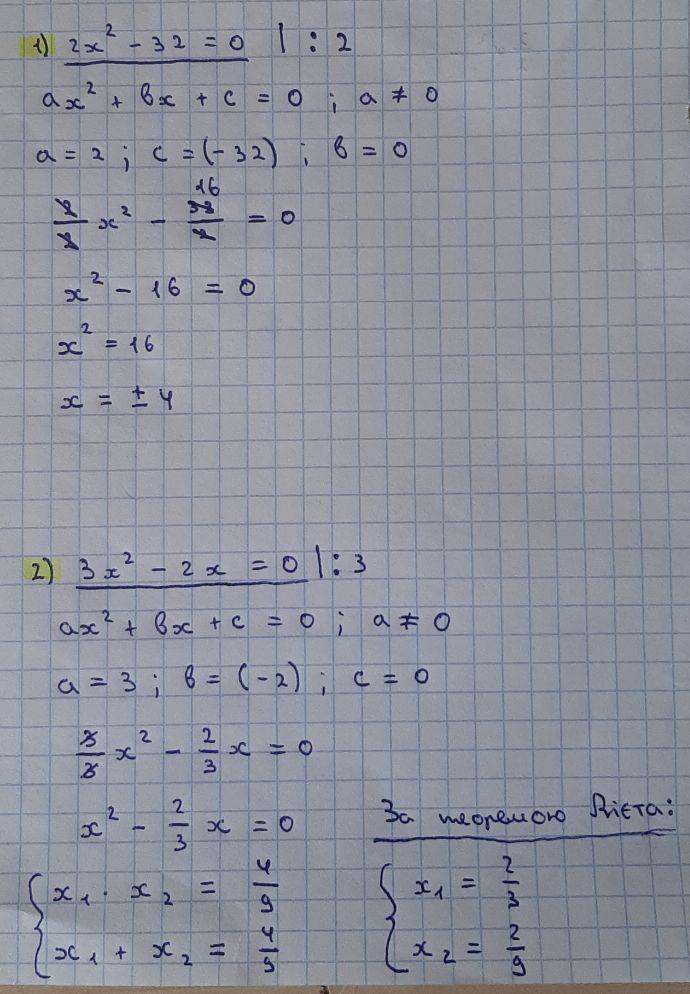 1) 2x² - 32 = 0 | : 2
ax² + bx + c = 0 ; a ≠ 0
a = 2 ; c = (-32) ; b = 0
2/2 x² - 32/2 = 0
16
x² - 16 = 0
x² = 16
x = ± 4
2) 3x² - 2x = 0 | : 3
ax² + bx + c = 0 ; a ≠ 0
a = 3 ; b = (-2) ; c = 0
3/3 x² - 2/3 x = 0
x² - 2/3 x = 0
За теоремою Вієта:
{ x₁ · x₂ = 4/9
x₁ + x₂ = 4/9
{ x₁ = 2/3
x₂ = 2/9